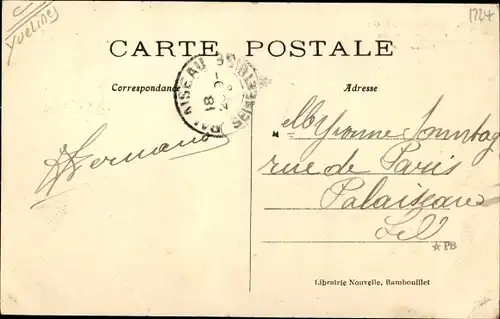 Yvelines
1224
CARTE POSTALE
Correspondance
Adresse
PALAISEAU
M elle Yvonne Sonntag
rue de Paris
Palaiseau
☆ PB
Librairie Nouvelle, Rambouillet